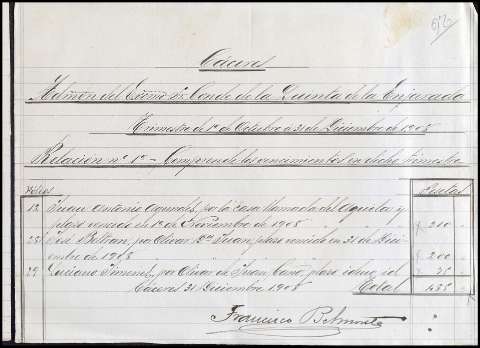 Cáceres
Admon del Exmo Sr. Conde de la Quinta de la Enjarada
Trimestre de 1º de Octubre a 31 de Diciembre de 1908
Relación nº 1º - Comprende los vencimientos en dicho trimestre
Pesetas
12 Juan Antonio por la casa llamada del y
plazo vencido en 1º de Noviembre de 1908 " " 210 "
25 José Beltran, por Olivar Dn Juan, plazo vencido en 31 de Diciem-
bre de 1908 " 200 "
29 Luciano Jimenez, por Olivar de Juan Caño, plazo idem, id. " 25 "
Cáceres 31 Diciembre 1908 Total 435 "
Francisco Belmonte